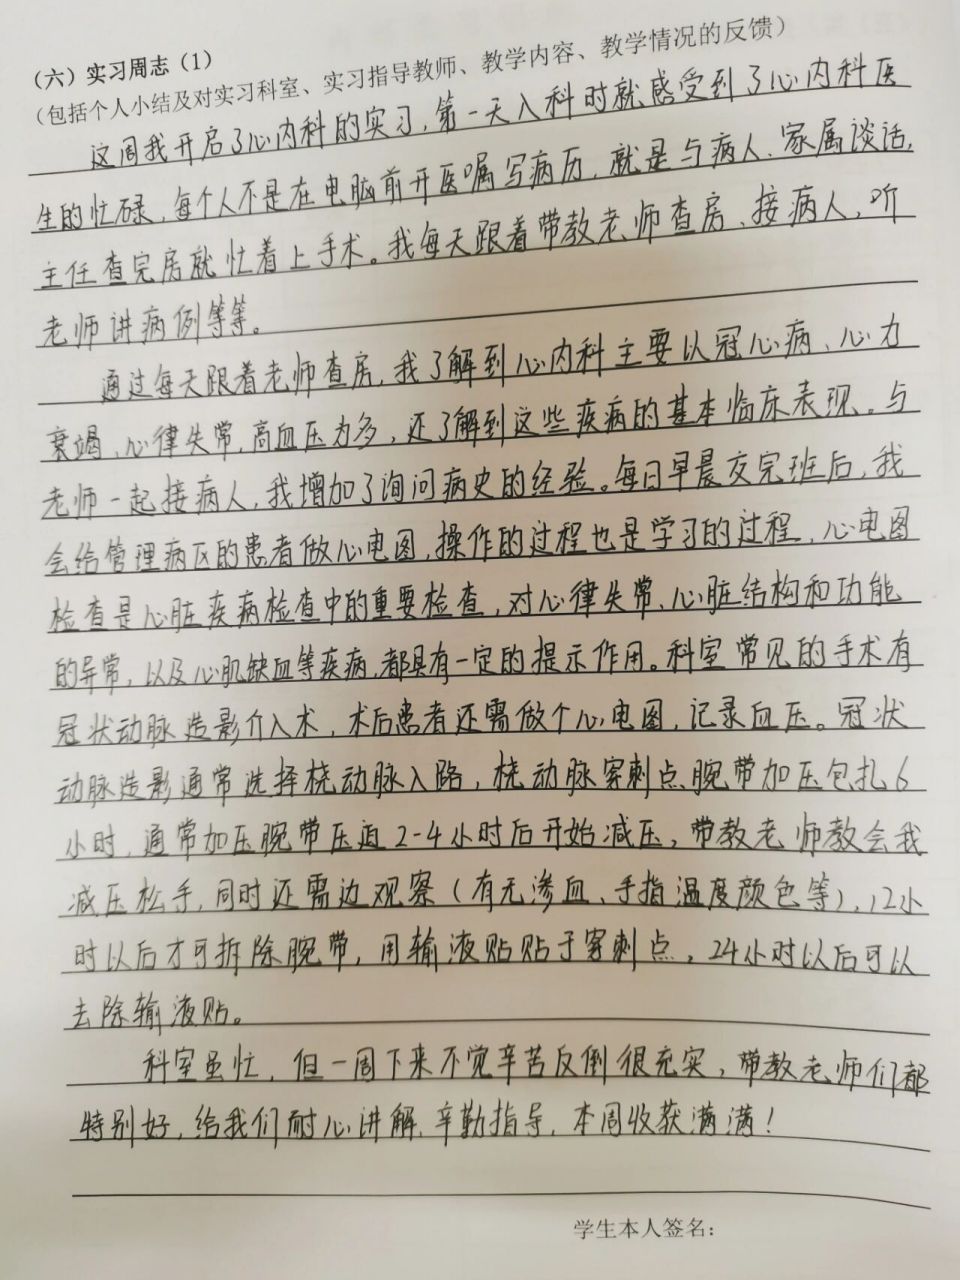 （六）实习周志（1）
（包括个人小结及对实习科室、实习指导教师、教学内容、教学情况的反馈）
这周我开启了心内科的实习，第一天入科时就感受到了心内科医
生的忙碌，每个人不是在电脑前开医嘱写病历，就是与病人、家属谈话，
主任查完房就忙着上手术。我每天跟着带教老师查房、接病人，听
老师讲病例等等。
通过每天跟着老师查房，我了解到心内科主要以冠心病、心力
衰竭、心律失常，高血压为多，还了解到这些疾病的基本临床表现。与
老师一起接病人，我增加了询问病史的经验。每日早晨交完班后，我
会给管理病区的患者做心电图，操作的过程也是学习的过程，心电图
检查是心脏疾病检查中的重要检查，对心律失常、心脏结构和功能
的异常，以及心肌缺血等疾病，都具有一定的提示作用。科室常见的手术有
冠状动脉造影介入术，术后患者还需做个心电图，记录血压。冠状
动脉造影通常选择桡动脉入路，桡动脉穿刺点腕带加压包扎6
小时，通常加压腕带压迫2-4小时后开始减压，带教老师教会我
减压松手，同时还需边观察（有无渗血、手指温度颜色等），12小
时以后才可拆除腕带，用输液贴贴于穿刺点，24小时以后可以
去除输液贴。
科室虽忙，但一周下来不觉辛苦反倒很充实，带教老师们都
特别好，给我们耐心讲解、辛勤指导，本周收获满满！
学生本人签名：